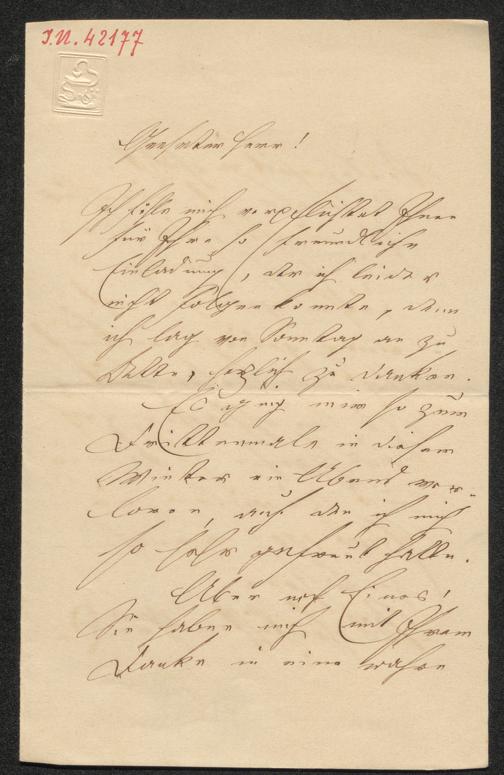 I.N. 42177
Geehrter Herr!
Ich fühle mich verpflichtet Ihnen
für Ihre so freundliche
Einladung, der ich leider
nicht folgen konnte, denn
ich lag von Sonntag an zu
Bette, herzlich zu danken.
Es ging mir so zum
Drittenmale in diesem
Winter ein Abend ver-
loren, auf den ich mich
so sehr gefreut hatte.
Aber noch Eines!
Sie haben mich mit Ihrem
Danke in eine wahre